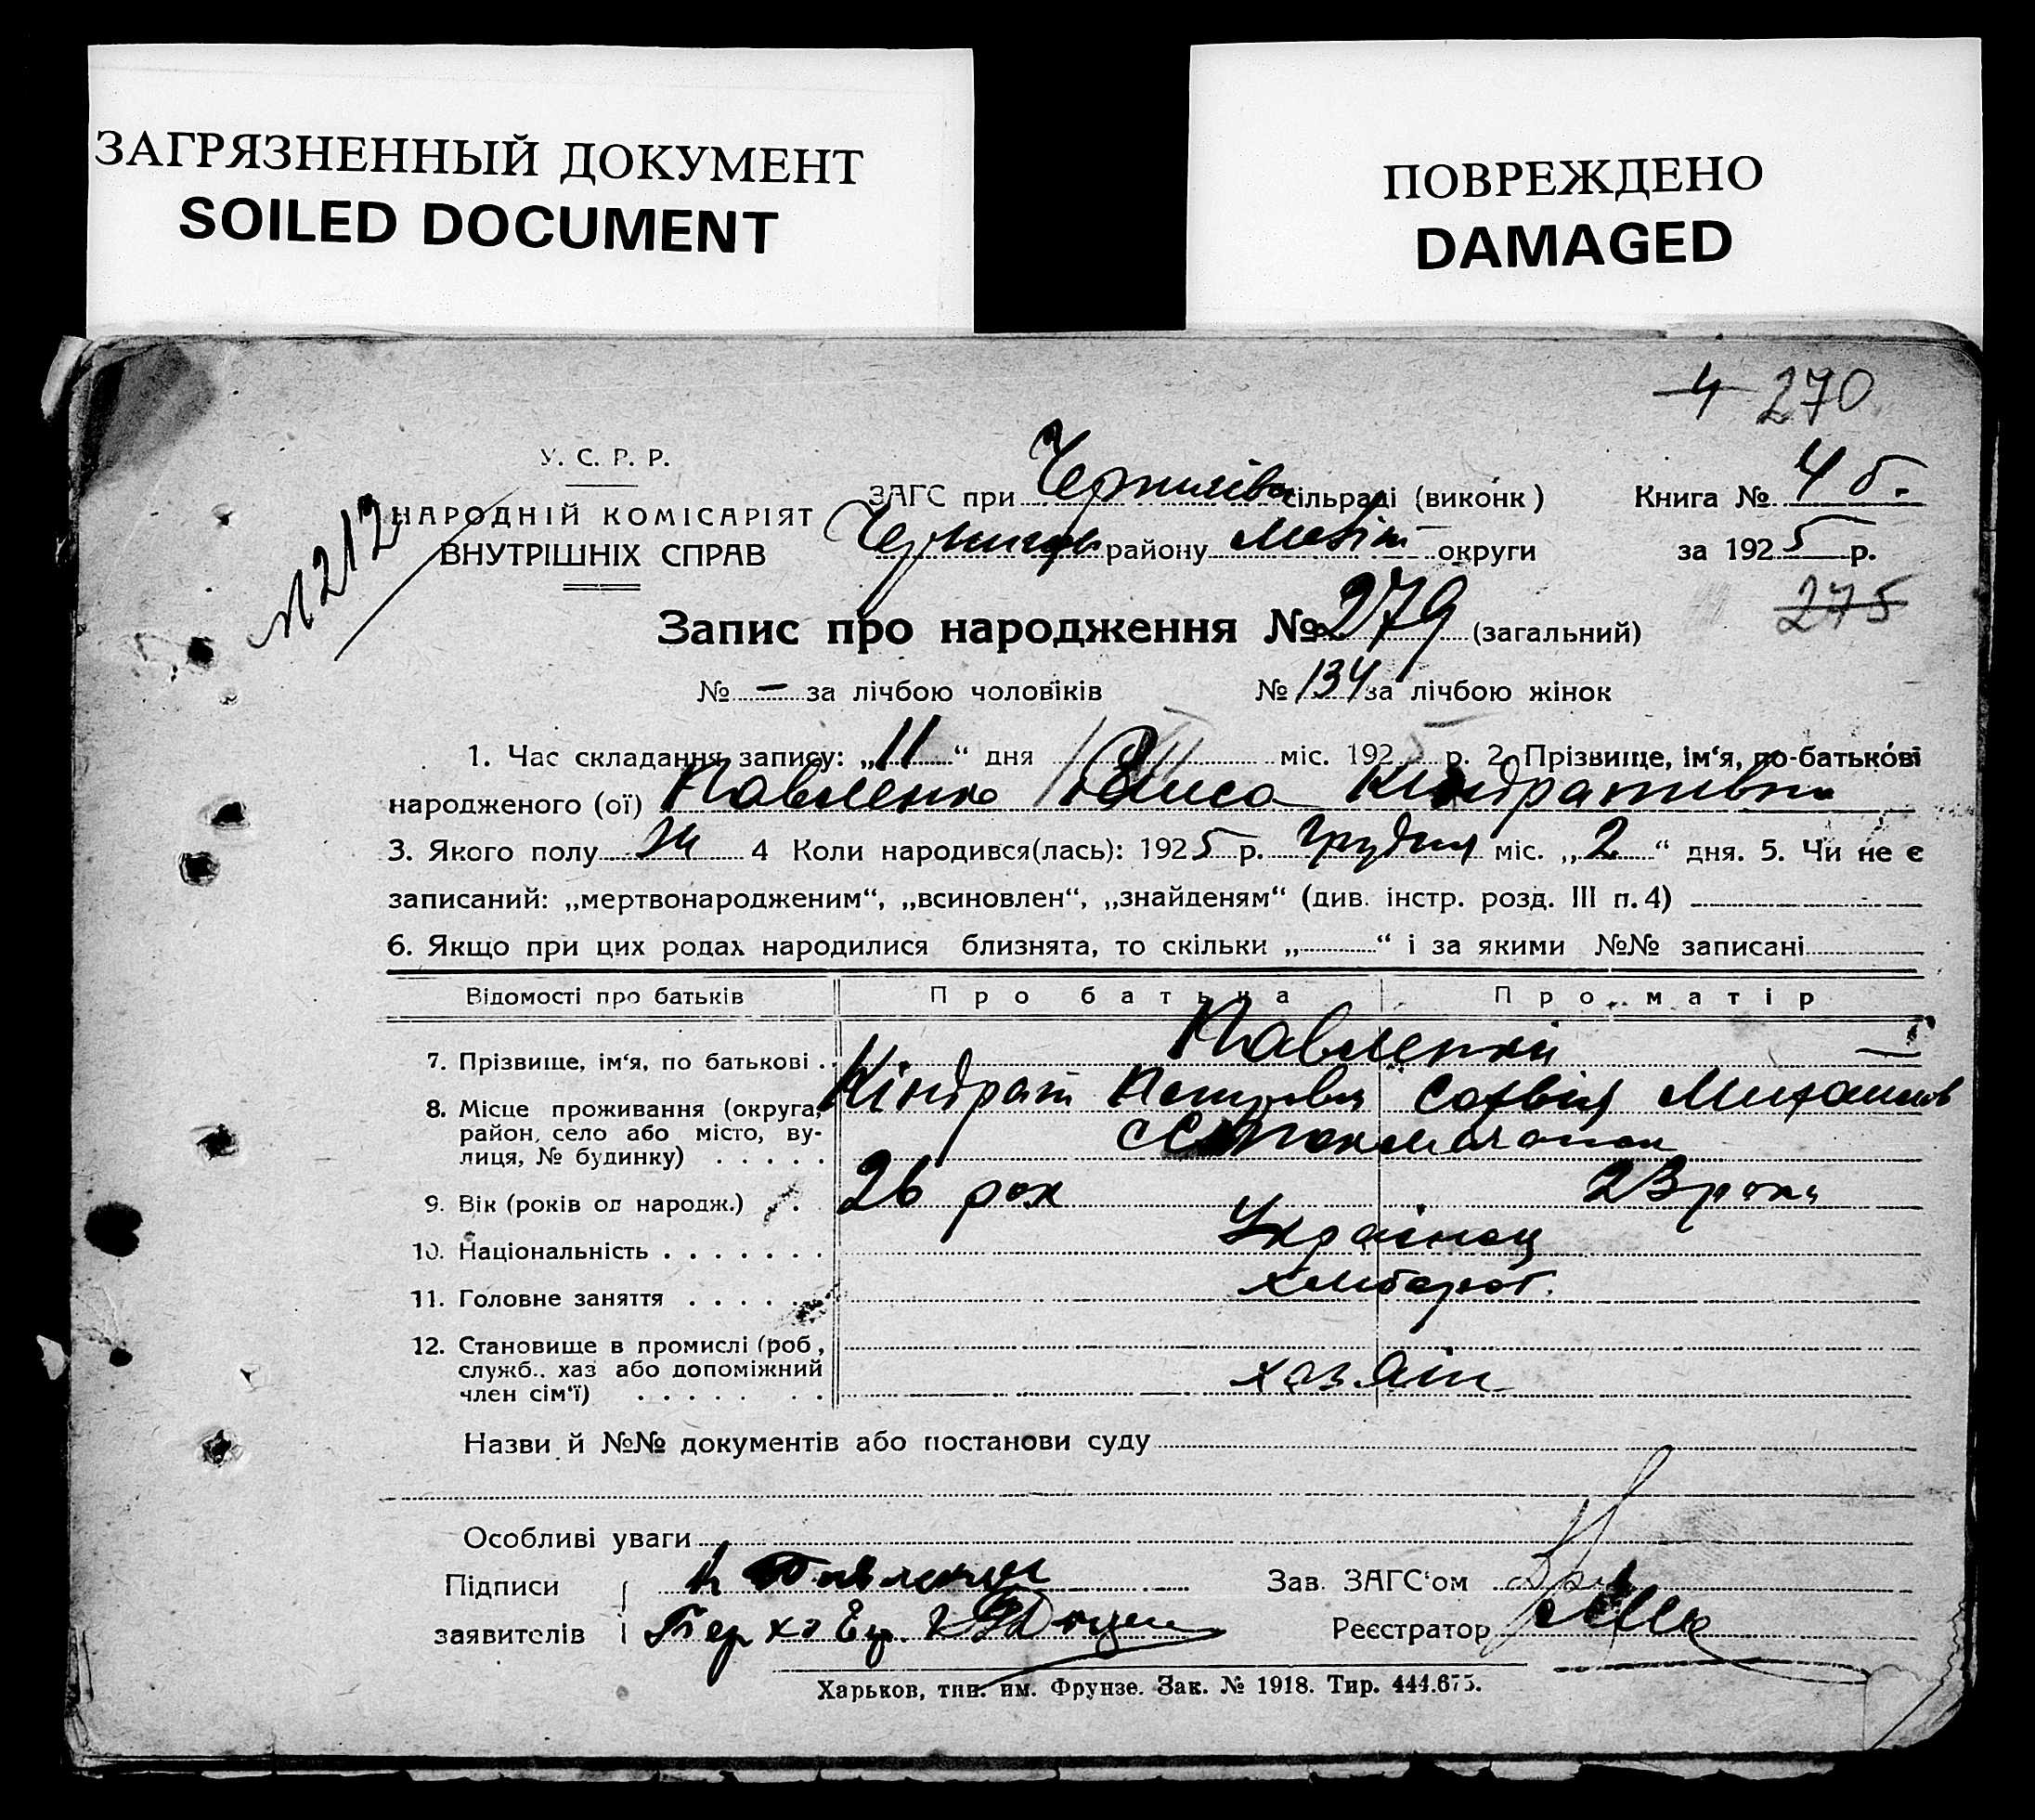 ЗАГРЯЗНЕННЫЙ ДОКУМЕНТ
SOILED DOCUMENT
ПОВРЕЖДЕНО
DAMAGED
4 270
У. С. Р. Р.
НАРОДНІЙ КОМІСАРІЯТ
ВНУТРІШНІХ СПРАВ
№ 212
ЗАГС при сільраді (виконк)
району округи
Книга № 4 б.
за 1925 р.
275
Запис про народження № 279 (загальний)
№ – за лічбою чоловіків № 134 за лічбою жінок
1. Час складання запису: „11“ дня міс. 1925 р. 2. Прізвище, ім‘я, по-батькові
народженого (ої) Павленко Кіндратівна
3. Якого полу ж 4 Коли народився(лась): 1925 р. Грудня міс. „2“ дня. 5. Чи не є
записаний: „мертвонародженим“, „всиновлен“, „знайденям“ (див. інстр. розд. III п. 4)
6. Якщо при цих родах народилися близнята, то скільки „ “ і за якими №№ записані
Відомості про батьків Про батька Про матір
7. Прізвище, ім‘я, по батькові . Павленки
Кіндрат Петрович Софвія
8. Місце проживання (округа,
район, село або місто, ву-
лиця, № будинку) . . . . .
9. Вік (років од народж.) . . 26 рок 23 роки
10. Національність . . . . . . . Українец
11. Головне заняття . . . . . хлібороб.
12. Становище в промислі (роб,
служб.. хаз або допоміжний
член сім‘ї) . . . . . . . хазяін
Назви й №№ документів або постанови суду
Особливі уваги
Підписи
заявителів
Зав. ЗАГС‘ом
Реєстратор
Харьков, тип. им. Фрунзе. Зак. № 1918. Тир. 444.675.